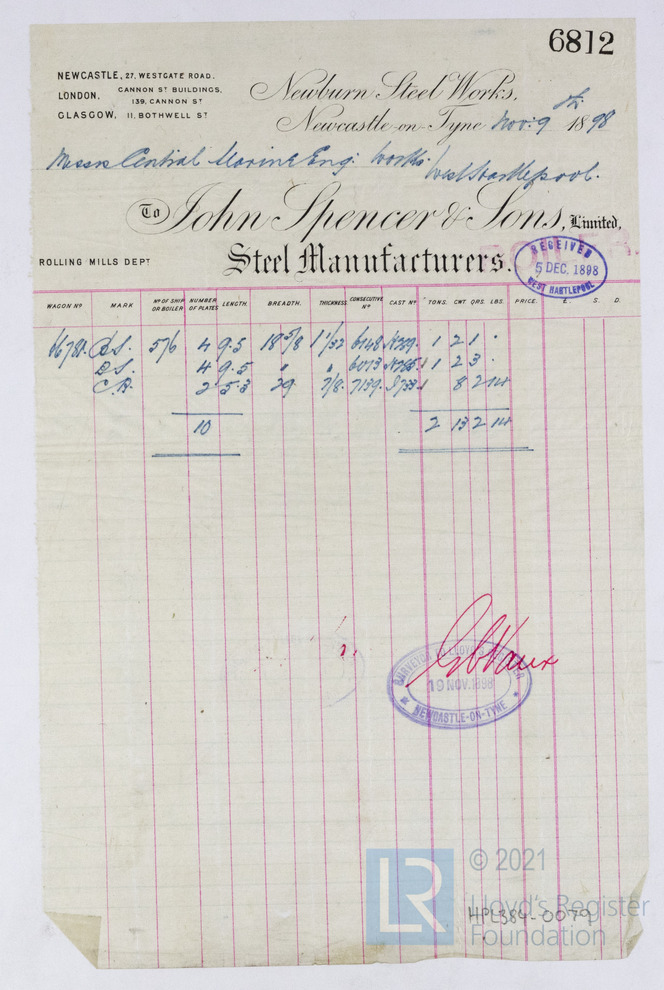 6812
NEWCASTLE, 27, WESTGATE ROAD.
LONDON, CANNON ST BUILDINGS, 139, CANNON ST
GLASGOW, 11, BOTHWELL ST
Newburn Steel Works,
Newcastle-on-Tyne Nov. 9th 1898
Messrs Central Marine Eng. Works.
West Hartlepool.
To John Spencer & Sons, Limited,
ROLLING MILLS DEPT
Steel Manufacturers.
RECEIVED
5 DEC. 1898
WEST HARTLEPOOL
WAGON No MARK No OF SHIP OR BOILER NUMBER OF PLATES LENGTH. BREADTH. THICKNESS. CONSECUTIVE No CAST No TONS. CWT QRS. LBS. PRICE. £. S. D.
B.S. 576 4 9.5 18 5/8 1 1/32 6148 1 2 1 .
B.S. 4 9.5 " " 6073 1 2 3 .
2 5.3 29 7/8. 7139. 8 2 14
10 2 13 2 14
SURVEYOR TO LLOYD'S REGISTER
19 NOV. 1898
NEWCASTLE-ON-TYNE
LR
© 2021
Lloyd's Register
Foundation
HPL384-0079